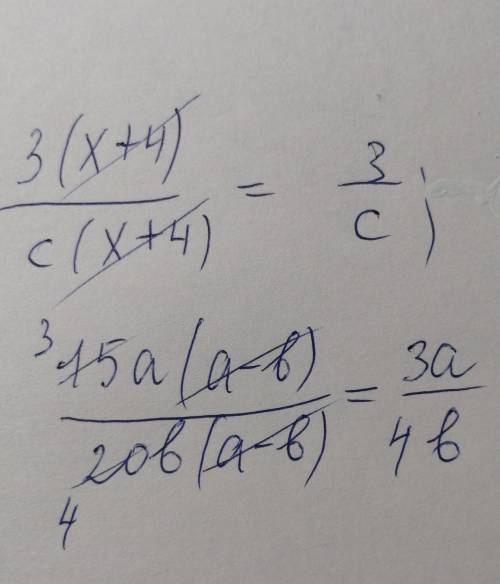 3(x+4)
/ c(x+4) = 3/c ;
3 15a(a-b)
/ 4 20b(a-b) = 3a/4b